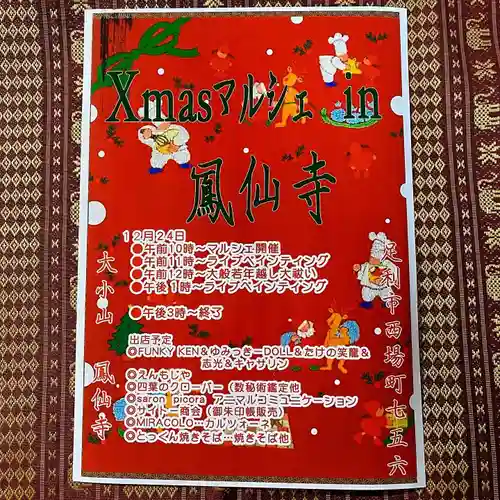 Xmasマルシェ in
鳳仙寺
12月24日
●午前10時~マルシェ開催
●午前11時~ライブペインティング
●午前12時~大般若年越し大祓い
●午後1時~ライブペインティング
●午後3時~終了
出店予定
◎FUNKY KEN&ゆみっきーDOLL&たけの笑龍&
志光&キャサリン
◎えんもじゃ
◎四葉のクローバー(数秘術鑑定他
◎saron picora アニマルコミュニケーション
◎サイトー商会(御朱印帳販売)
◎MIRACOLO…カルツォーネ
◎とっくん焼きそば…焼きそば他
大小山 鳳仙寺
足利市西場町七五六